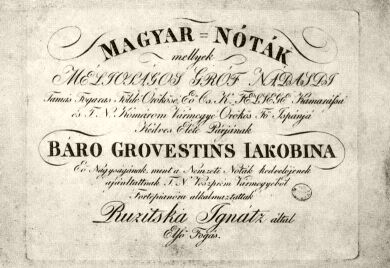 MAGYAR = NÓTÁK
mellyek
MÉLTÓSÁGOS GRÓF NÁDASDI
Tamás Fogaras Földe Örökösse, Eö Cs. K. FELSÉGE Kamarássá
és T. N. Komárom Vármegye Örökös Fő Ispánjá
Kedves Élete Párjának
BÁRO GROVESTINS IAKOBINA
Eö Nagyságának, mint a Nemzeti Nóták kedvelőjének
ajánltattnak T. N. Veszprém Vármegyéből
Fortepianóra alkalmaztattak
Ruzitska Ignátz által
Első Fogás.